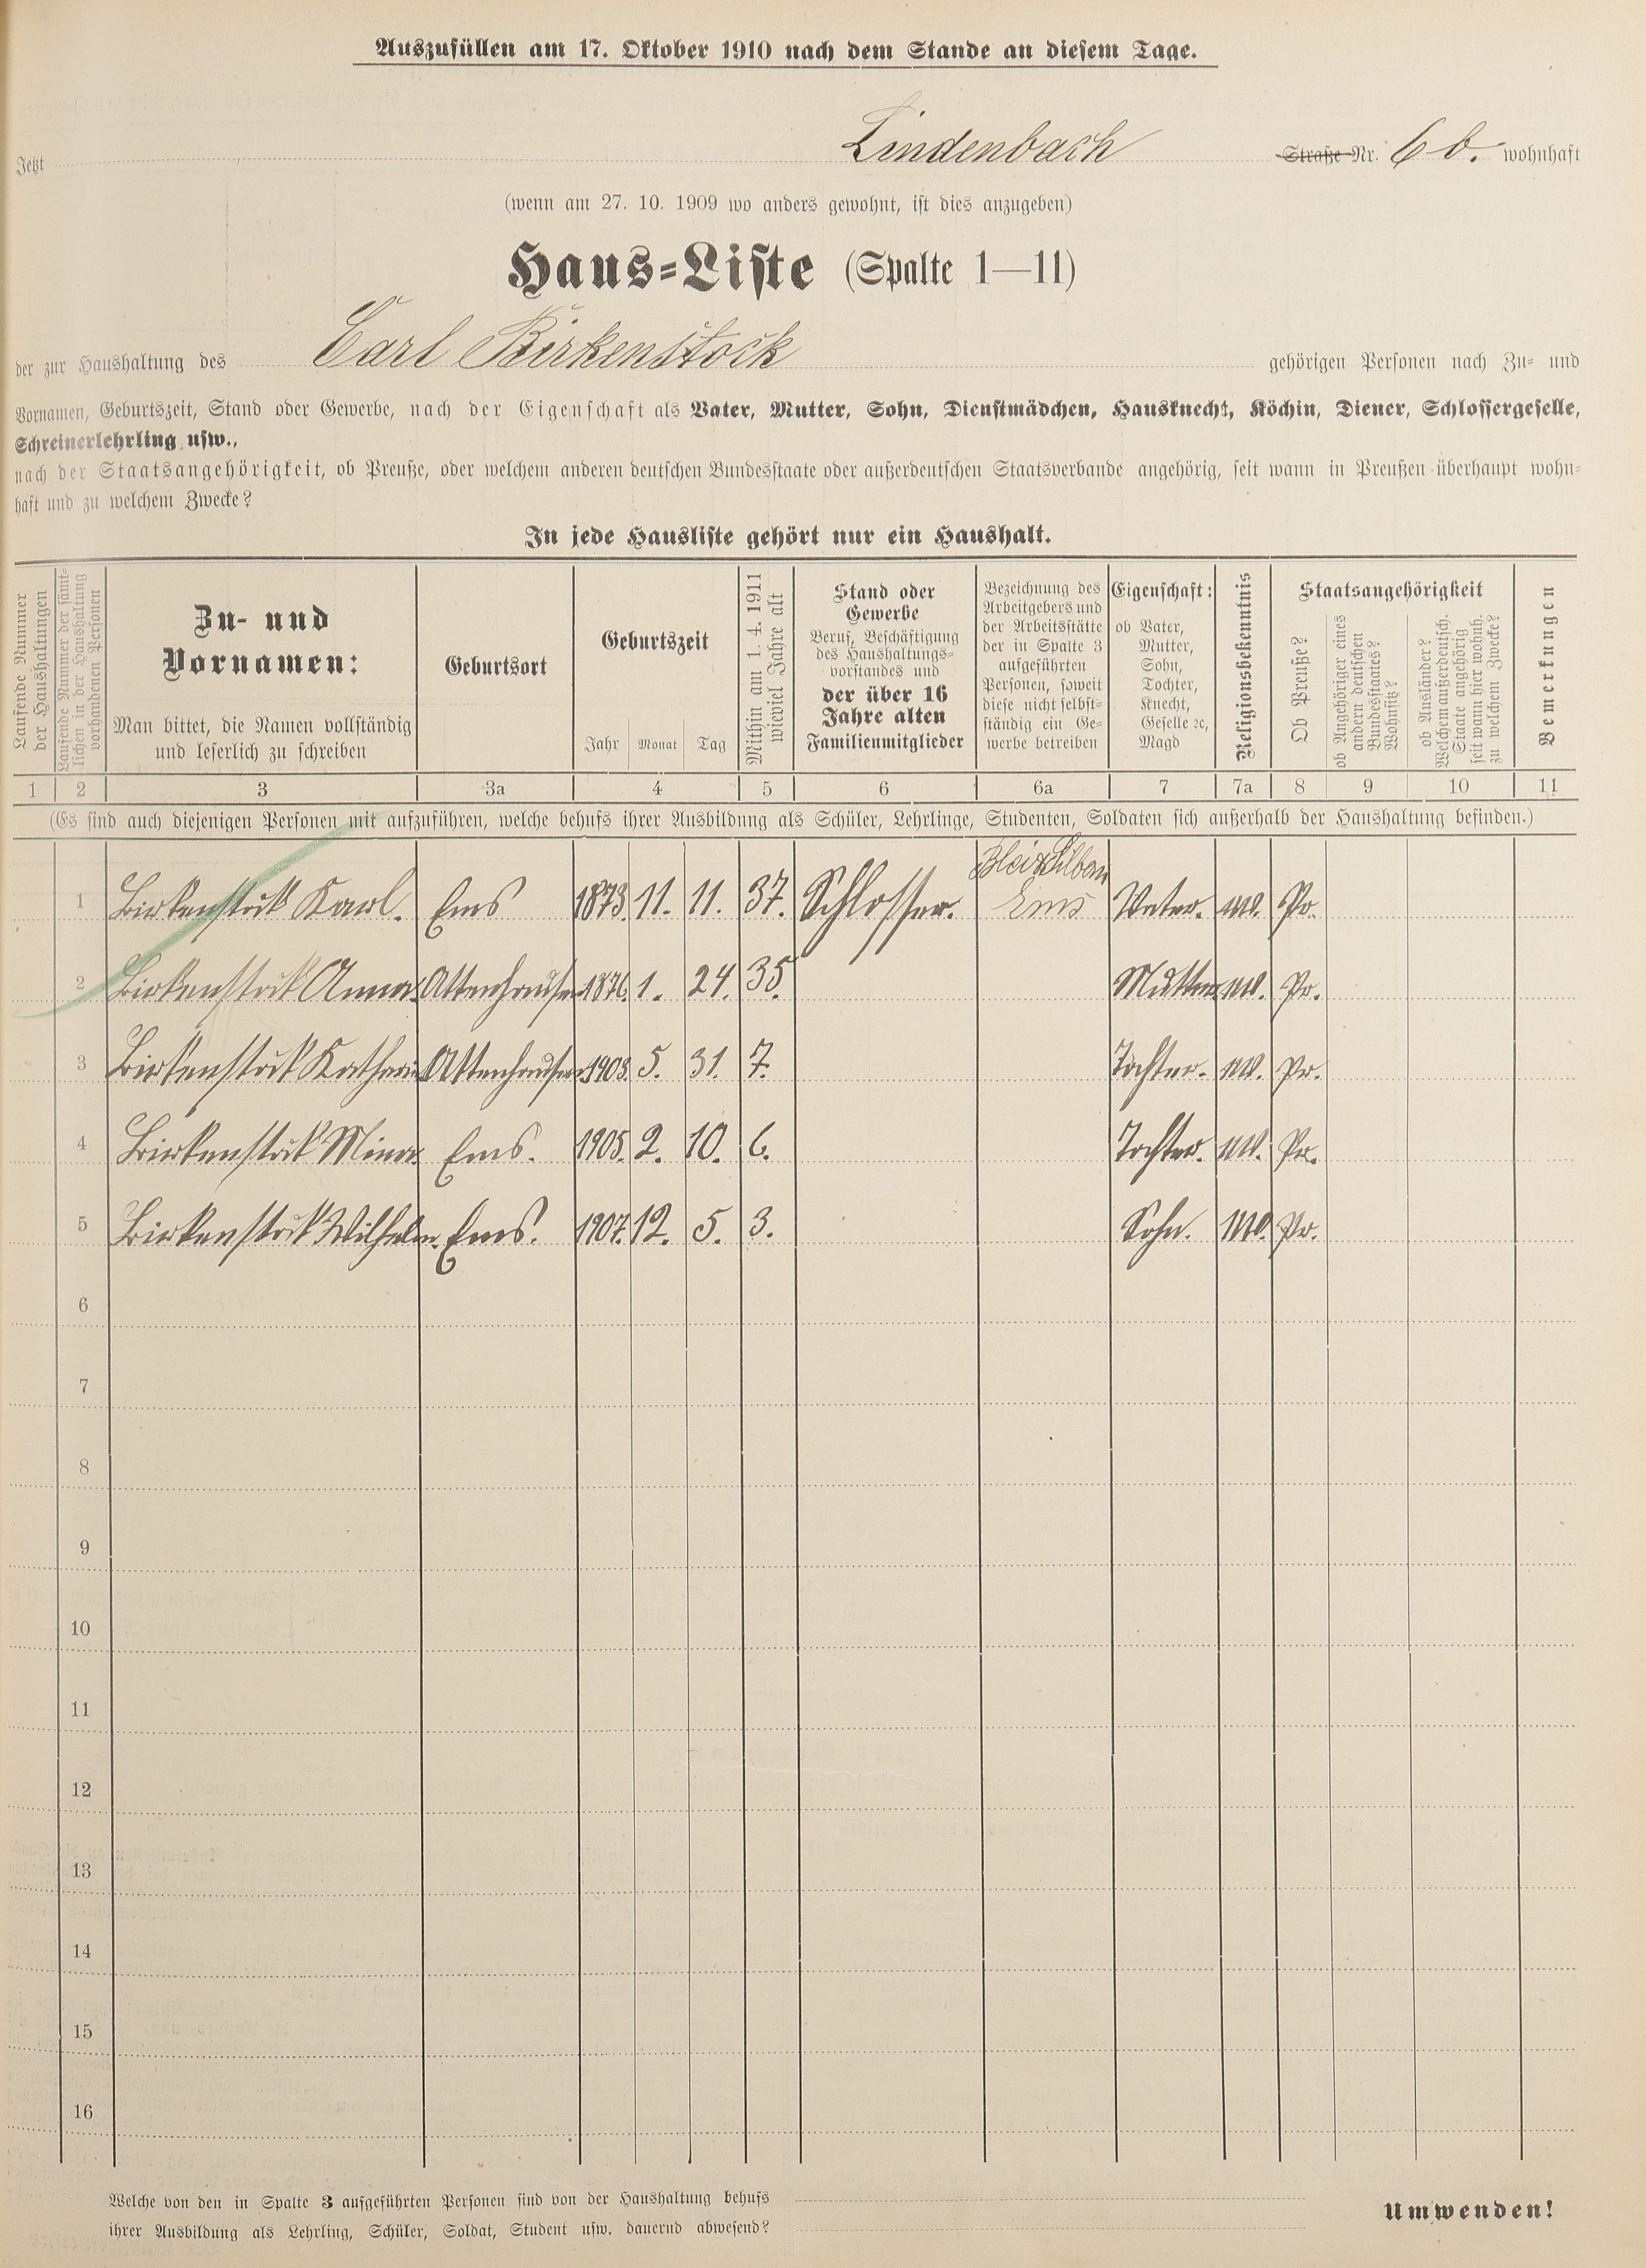 Auszufüllen am 17. Oktober 1910 nach dem Stande an diesem Tage.
Jetzt Lindenbach Straße Nr. 6 b. wohnhaft
(wenn am 27. 10. 1909 wo anders gewohnt, ist dies anzugeben)
Haus-Liste (Spalte 1—11)
der zur Haushaltung des Carl Birkenstock gehörigen Personen nach Zu- und
Vornamen, Geburtszeit, Stand oder Gewerbe, nach der Eigenschaft als Vater, Mutter, Sohn, Dienstmädchen, Hausknecht, Köchin, Diener, Schlossergeselle,
Schreinerlehrling usw.,
nach der Staatsangehörigkeit, ob Preuße, oder welchem anderen deutschen Bundesstaate oder außerdeutschen Staatsverbande angehörig, seit wann in Preußen überhaupt wohn-
haft und zu welchem Zwecke?
In jede Hausliste gehört nur ein Haushalt.
Laufende Nummer
der Haushaltungen
Laufende Nummer der sämt-
lichen in der Haushaltung
vorhandenen Personen
Zu- und
Vornamen:
Man bittet, die Namen vollständig
und leserlich zu schreiben
Geburtsort
Geburtszeit
Jahr Monat Tag
Mithin am 1. 4. 1911
wieviel Jahre alt
Stand oder
Gewerbe
Beruf, Beschäftigung
des Haushaltungs-
vorstandes und
der über 16
Jahre alten
Familienmitglieder
Bezeichnung des
Arbeitgebers und
der Arbeitsstätte
der in Spalte 3
aufgeführten
Personen, soweit
diese nicht selbst-
ständig ein Ge-
werbe betreiben
Eigenschaft:
ob Vater,
Mutter,
Sohn,
Tochter,
Knecht,
Geselle ec,
Magd
Religionsbekenntnis
Staatsangehörigkeit
Ob Preuße?
ob Angehöriger eines
andern deutschen
Bundesstaates?
Wohnsitz?
ob Ausländer?
Welchem außerdeutsch.
Staate angehörig
seit wann hier wohnh.
zu welchem Zwecke?
Bemerkungen
1 2 3 3a 4 5 6 6a 7 7a 8 9 10 11
(Es sind auch diejenigen Personen mit aufzuführen, welche behufs ihrer Ausbildung als Schüler, Lehrlinge, Studenten, Soldaten sich außerhalb der Haushaltung befinden.)
1 Birkenstock Karl. Ems 1873. 11. 11. 37. Schlosser. Ems Vater. Pr.
2 Birkenstock Anna. Attenhausen 1876. 1. 24. 35. Mutter Pr.
3 Birkenstock Attenhausen 1903. 5. 31. 7. Tochter. Pr.
4 Birkenstock Mina. Ems. 1905. 2. 10. 6. Tochter. Pr.
5 Birkenstock Wilhelm. Ems. 1907. 12. 5. 3. Sohn. Pr.
6
7
8
9
10
11
12
13
14
15
16
Welche von den in Spalte 3 aufgeführten Personen sind von der Haushaltung behufs
ihrer Ausbildung als Lehrling, Schüler, Soldat, Student usw. dauernd abwesend?
Umwenden!